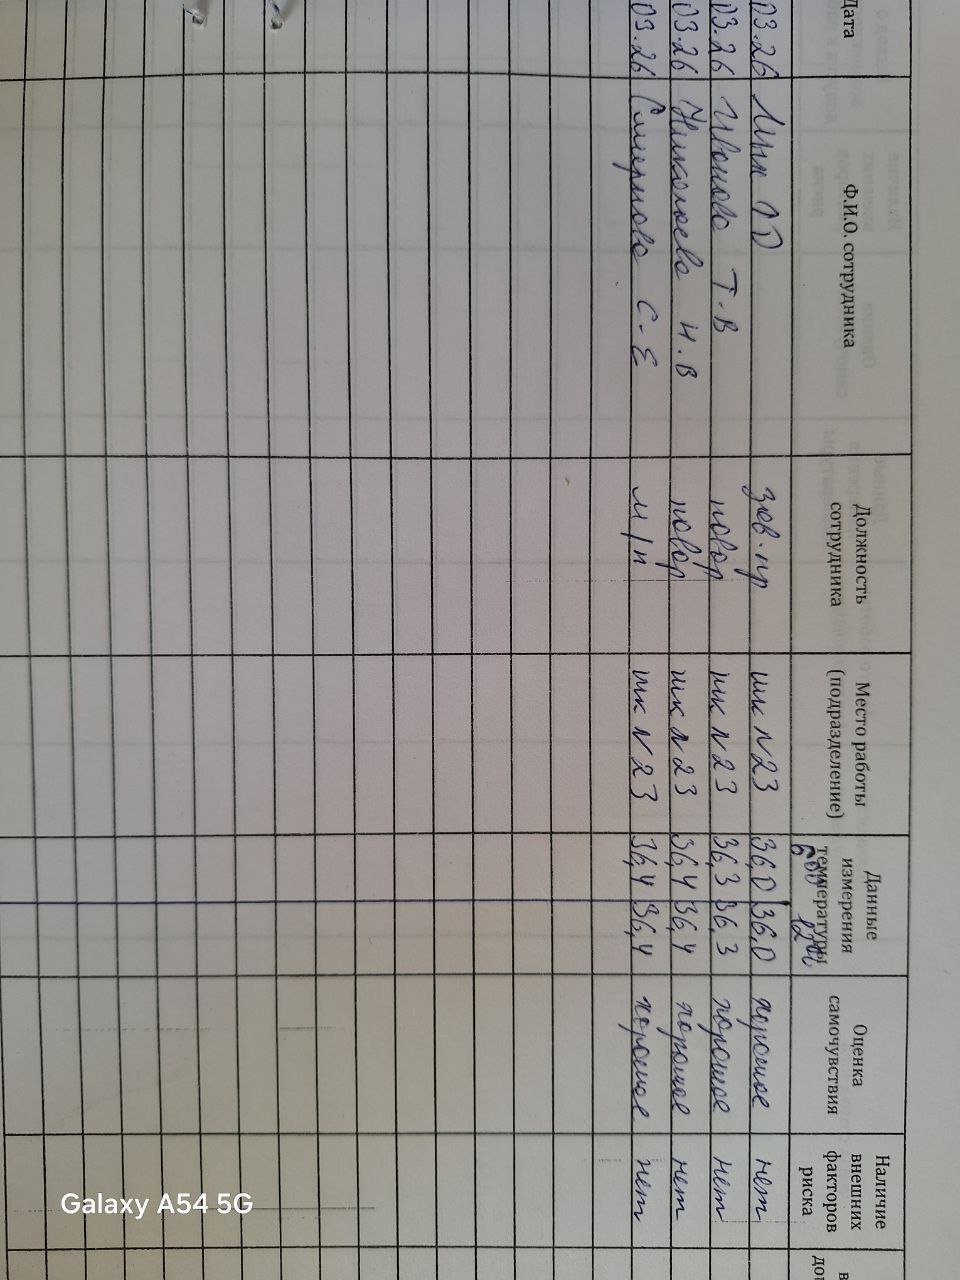 Дата Ф.И.О. сотрудника Должность сотрудника Место работы (подразделение) Данные измерения температуры Оценка самочувствия Наличие внешних факторов риска
6 00 12 00
03.26 зав.пр шк N 23 36,0 36,0 хорошое нет
03.26 Иванова Т.В повар шк N 23 36,3 36,3 хорошое нет
03.26 Николаева Н.В повар шк N 23 36,4 36,4 хорошое нет
03.26 Смирнова С.Е м/п шк N 23 36,4 36,4 хорошое нет
Galaxy A54 5G